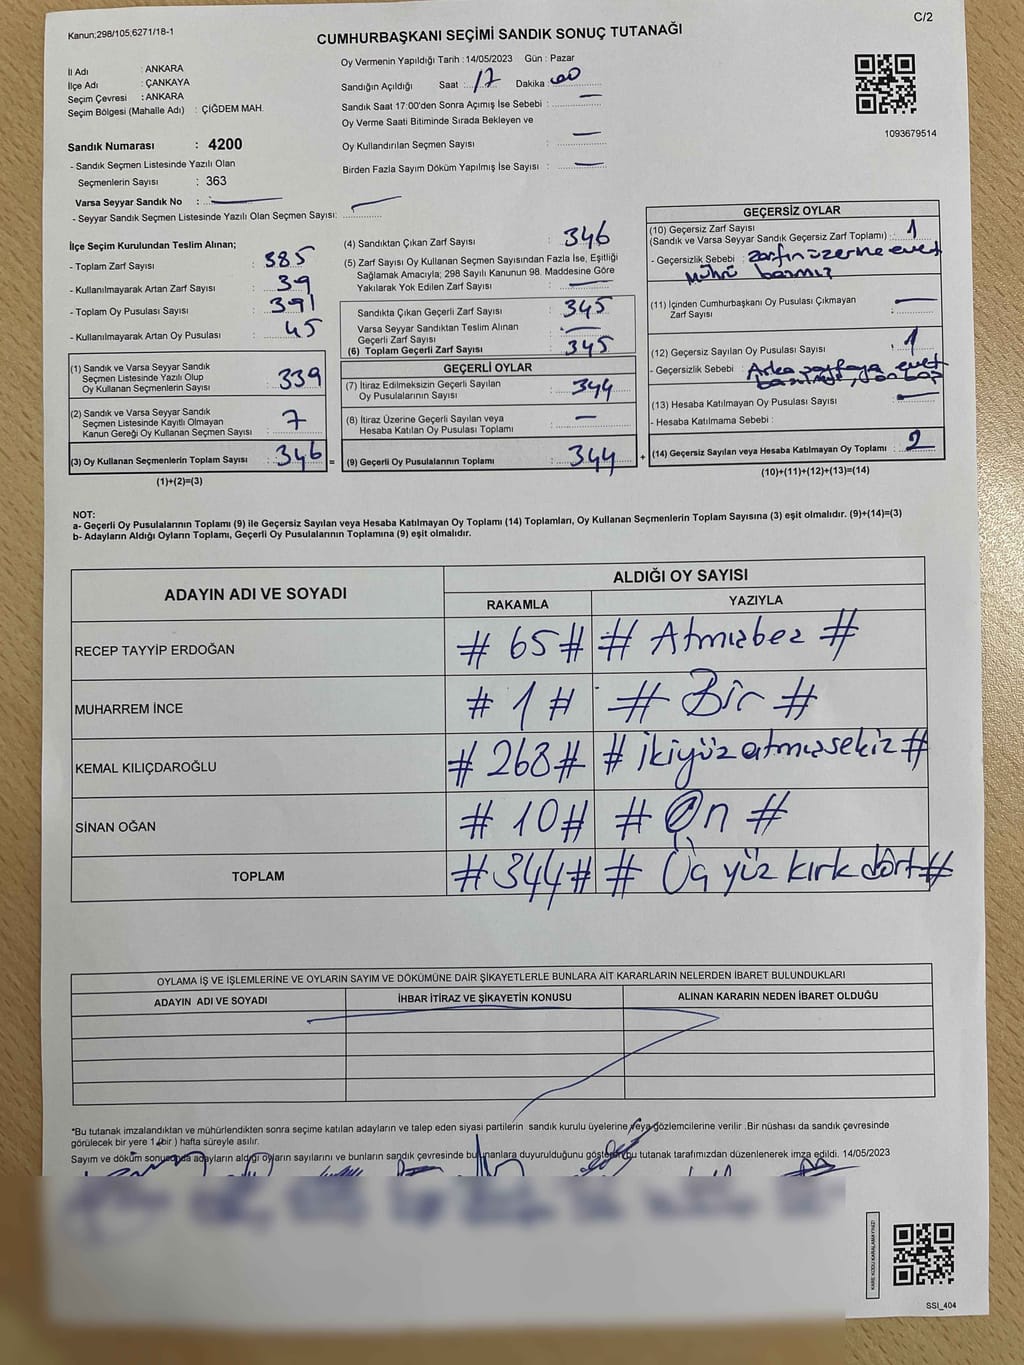 C/2
Kanun;298/105,6271/18-1
CUMHURBAŞKANI SEÇİMİ SANDIK SONUÇ TUTANAĞI
İl Adı : ANKARA
İlçe Adı : ÇANKAYA
Seçim Çevresi : ANKARA
Seçim Bölgesi (Mahalle Adı) : ÇİĞDEM MAH.
Sandık Numarası : 4200
- Sandık Seçmen Listesinde Yazılı Olan
Seçmenlerin Sayısı : 363
Varsa Seyyar Sandık No :
- Seyyar Sandık Seçmen Listesinde Yazılı Olan Seçmen Sayısı:
Oy Vermenin Yapıldığı Tarih :14/05/2023 Gün : Pazar
Sandığın Açıldığı Saat : 17 Dakika : 00
Sandık Saat 17:00'den Sonra Açımış İse Sebebi :
Oy Verme Saati Bitiminde Sırada Bekleyen ve
Oy Kullandırılan Seçmen Sayısı :
Birden Fazla Sayım Döküm Yapılmış İse Sayısı :
1093679514
İlçe Seçim Kurulundan Teslim Alınan;
- Toplam Zarf Sayısı : 385
- Kullanılmayarak Artan Zarf Sayısı : 39
- Toplam Oy Pusulası Sayısı : 391
- Kullanılmayarak Artan Oy Pusulası : 45
(1) Sandık ve Varsa Seyyar Sandık
Seçmen Listesinde Yazılı Olup
Oy Kullanan Seçmenlerin Sayısı : 339
(2) Sandık ve Varsa Seyyar Sandık
Seçmen Listesinde Kayıtlı Olmayan
Kanun Gereği Oy Kullanan Seçmen Sayısı : 7
(3) Oy Kullanan Seçmenlerin Toplam Sayısı : 346 =
(1)+(2)=(3)
(4) Sandıktan Çıkan Zarf Sayısı : 346
(5) Zarf Sayısı Oy Kullanan Seçmen Sayısından Fazla İse, Eşitliği
Sağlamak Amacıyla; 298 Sayılı Kanunun 98. Maddesine Göre
Yakılarak Yok Edilen Zarf Sayısı :
Sandıkta Çıkan Geçerli Zarf Sayısı : 345
Varsa Seyyar Sandıktan Teslim Alınan
Geçerli Zarf Sayısı :
(6) Toplam Geçerli Zarf Sayısı : 345
GEÇERLİ OYLAR
(7) İtiraz Edilmeksizin Geçerli Sayılan
Oy Pusulalarının Sayısı : 344
(8) İtiraz Üzerine Geçerli Sayılan veya
Hesaba Katılan Oy Pusulası Toplamı :
(9) Geçerli Oy Pusulalarının Toplamı : 344 +
GEÇERSİZ OYLAR
(10) Geçersiz Zarf Sayısı
(Sandık ve Varsa Seyyar Sandık Geçersiz Zarf Toplamı) : 1
- Geçersizlik Sebebi : Zarfın üzerine evet
mührü basmış
(11) İçinden Cumhurbaşkanı Oy Pusulası Çıkmayan
Zarf Sayısı :
(12) Geçersiz Sayılan Oy Pusulası Sayısı : 1
- Geçersizlik Sebebi : Arka sayfaya evet
basılmış,
(13) Hesaba Katılmayan Oy Pusulası Sayısı :
- Hesaba Katılmama Sebebi :
(14) Geçersiz Sayılan veya Hesaba Katılmayan Oy Toplamı : 2
(10)+(11)+(12)+(13)=(14)
NOT:
a- Geçerli Oy Pusulalarının Toplamı (9) ile Geçersiz Sayılan veya Hesaba Katılmayan Oy Toplamı (14) Toplamları, Oy Kullanan Seçmenlerin Toplam Sayısına (3) eşit olmalıdır. (9)+(14)=(3)
b- Adayların Aldığı Oyların Toplamı, Geçerli Oy Pusulalarının Toplamına (9) eşit olmalıdır.
ADAYIN ADI VE SOYADI
ALDIĞI OY SAYISI
RAKAMLA YAZIYLA
RECEP TAYYİP ERDOĞAN # 65 # # Atmışbeş #
MUHARREM İNCE # 1 # # Bir #
KEMAL KILIÇDAROĞLU # 268 # # ikiyüz atmışsekiz #
SİNAN OĞAN # 10 # # On #
TOPLAM # 344 # # Üç yüz kırk dört #
OYLAMA İŞ VE İŞLEMLERİNE VE OYLARIN SAYIM VE DÖKÜMÜNE DAİR ŞİKAYETLERLE BUNLARA AİT KARARLARIN NELERDEN İBARET BULUNDUKLARI
ADAYIN ADI VE SOYADI İHBAR İTİRAZ VE ŞİKAYETİN KONUSU ALINAN KARARIN NEDEN İBARET OLDUĞU
*Bu tutanak imzalandıktan ve mühürlendikten sonra seçime katılan adayların ve talep eden siyasi partilerin sandık kurulu üyelerine veya gözlemcilerine verilir .Bir nüshası da sandık çevresinde
görülecek bir yere 1 (bir ) hafta süreyle asılır.
Sayım ve döküm sonucunda adayların aldığı oyların sayılarını ve bunların sandık çevresinde bulunanlara duyurulduğunu gösteren bu tutanak tarafımızdan düzenlenerek imza edildi. 14/05/2023
KARE KODU KARALAMAYINIZ!
SSI_404